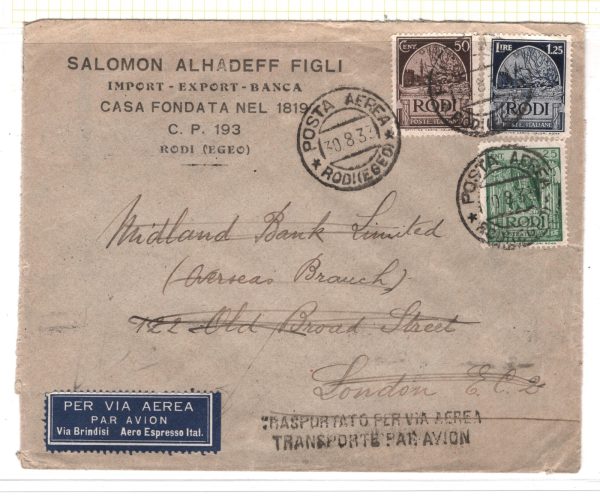 SALOMON ALHADEFF FIGLI
IMPORT - EXPORT - BANCA
CASA FONDATA NEL 1819
C. P. 193
RODI (EGEO)
CENT 50
RODI
POSTE ITALIANE
LIRE 1,25
RODI
POSTE ITALIANE
25
RODI
POSTA AEREA
30.8.33
★ RODI (EGEO) ★
POSTA AEREA
Midland Bank Limited
(Overseas Branch)
122 Old Broad Street
London E.C.2
PER VIA AEREA
PAR AVION
Via Brindisi Aero Espresso Ital.
TRASPORTATO PER VIA AEREA
TRANSPORTE PAR AVION